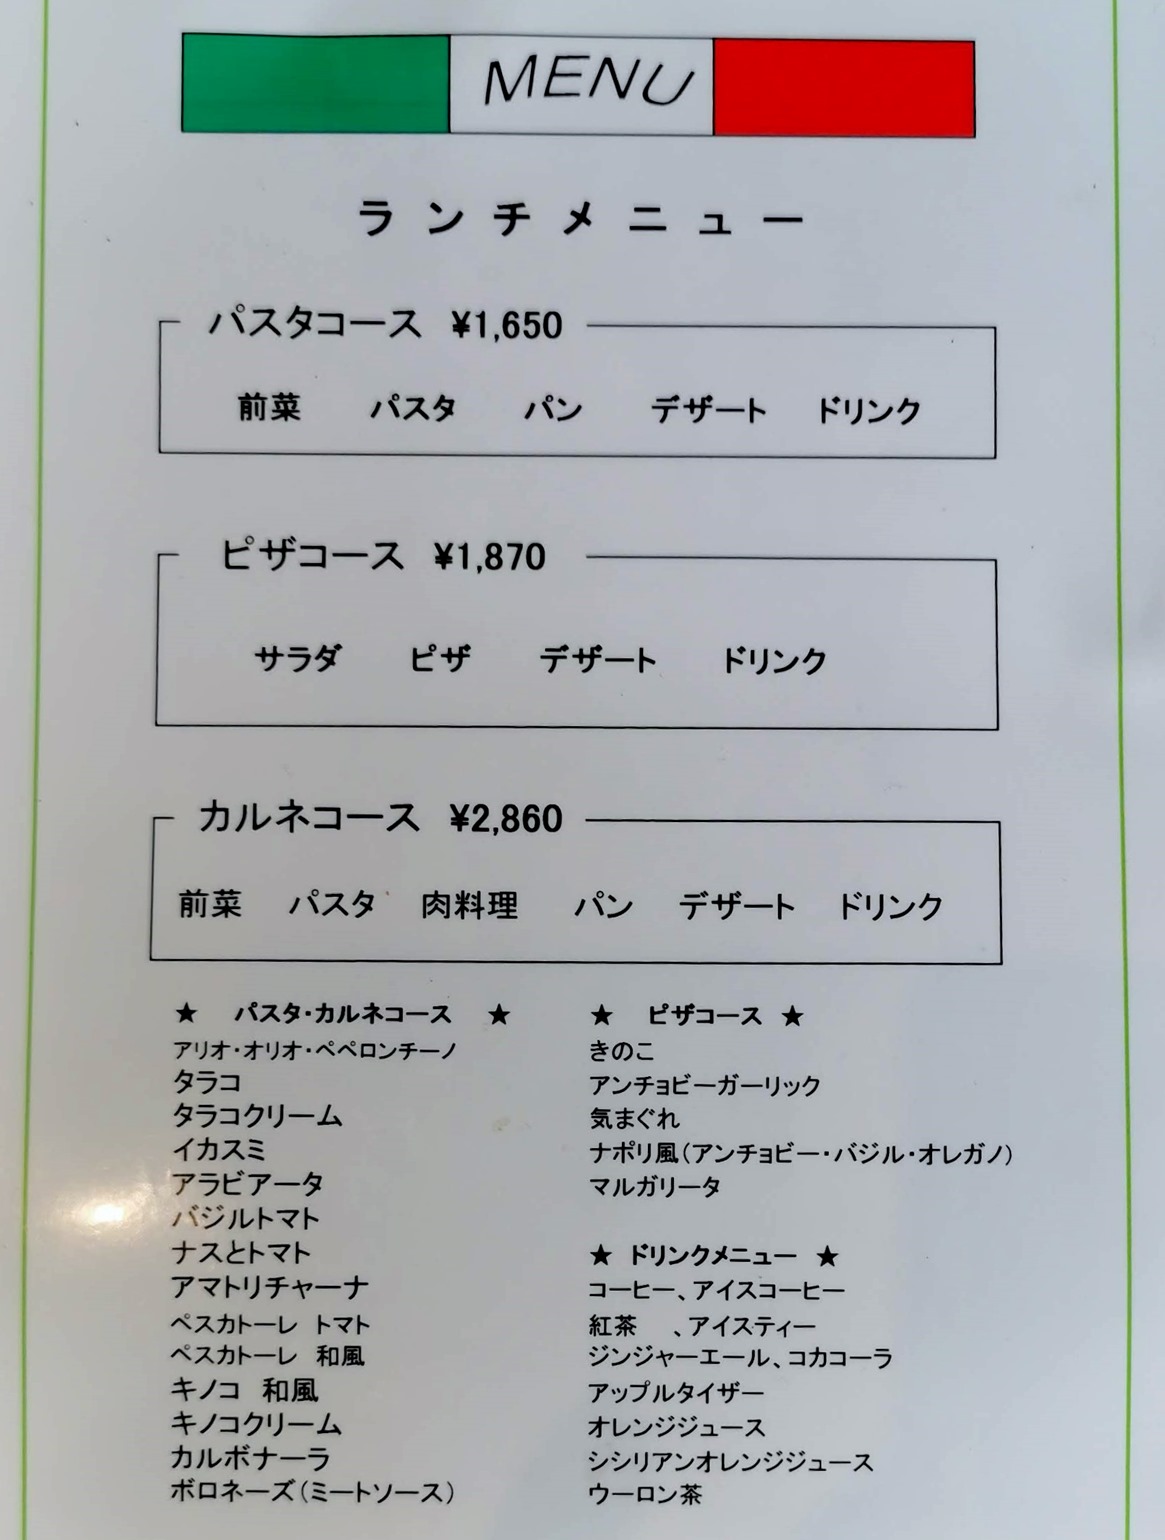 MENU
ランチメニュー
パスタコース ¥1,650
前菜 パスタ パン デザート ドリンク
ピザコース ¥1,870
サラダ ピザ デザート ドリンク
カルネコース ¥2,860
前菜 パスタ 肉料理 パン デザート ドリンク
★ パスタ・カルネコース ★
アリオ・オリオ・ペペロンチーノ
タラコ
タラコクリーム
イカスミ
アラビアータ
バジルトマト
ナスとトマト
アマトリチャーナ
ペスカトーレ トマト
ペスカトーレ 和風
キノコ 和風
キノコクリーム
カルボナーラ
ボロネーズ(ミートソース)
★ ピザコース ★
きのこ
アンチョビーガーリック
気まぐれ
ナポリ風(アンチョビー・バジル・オレガノ)
マルガリータ
★ ドリンクメニュー ★
コーヒー、アイスコーヒー
紅茶 、アイスティー
ジンジャーエール、コカコーラ
アップルタイザー
オレンジジュース
シシリアンオレンジジュース
ウーロン茶